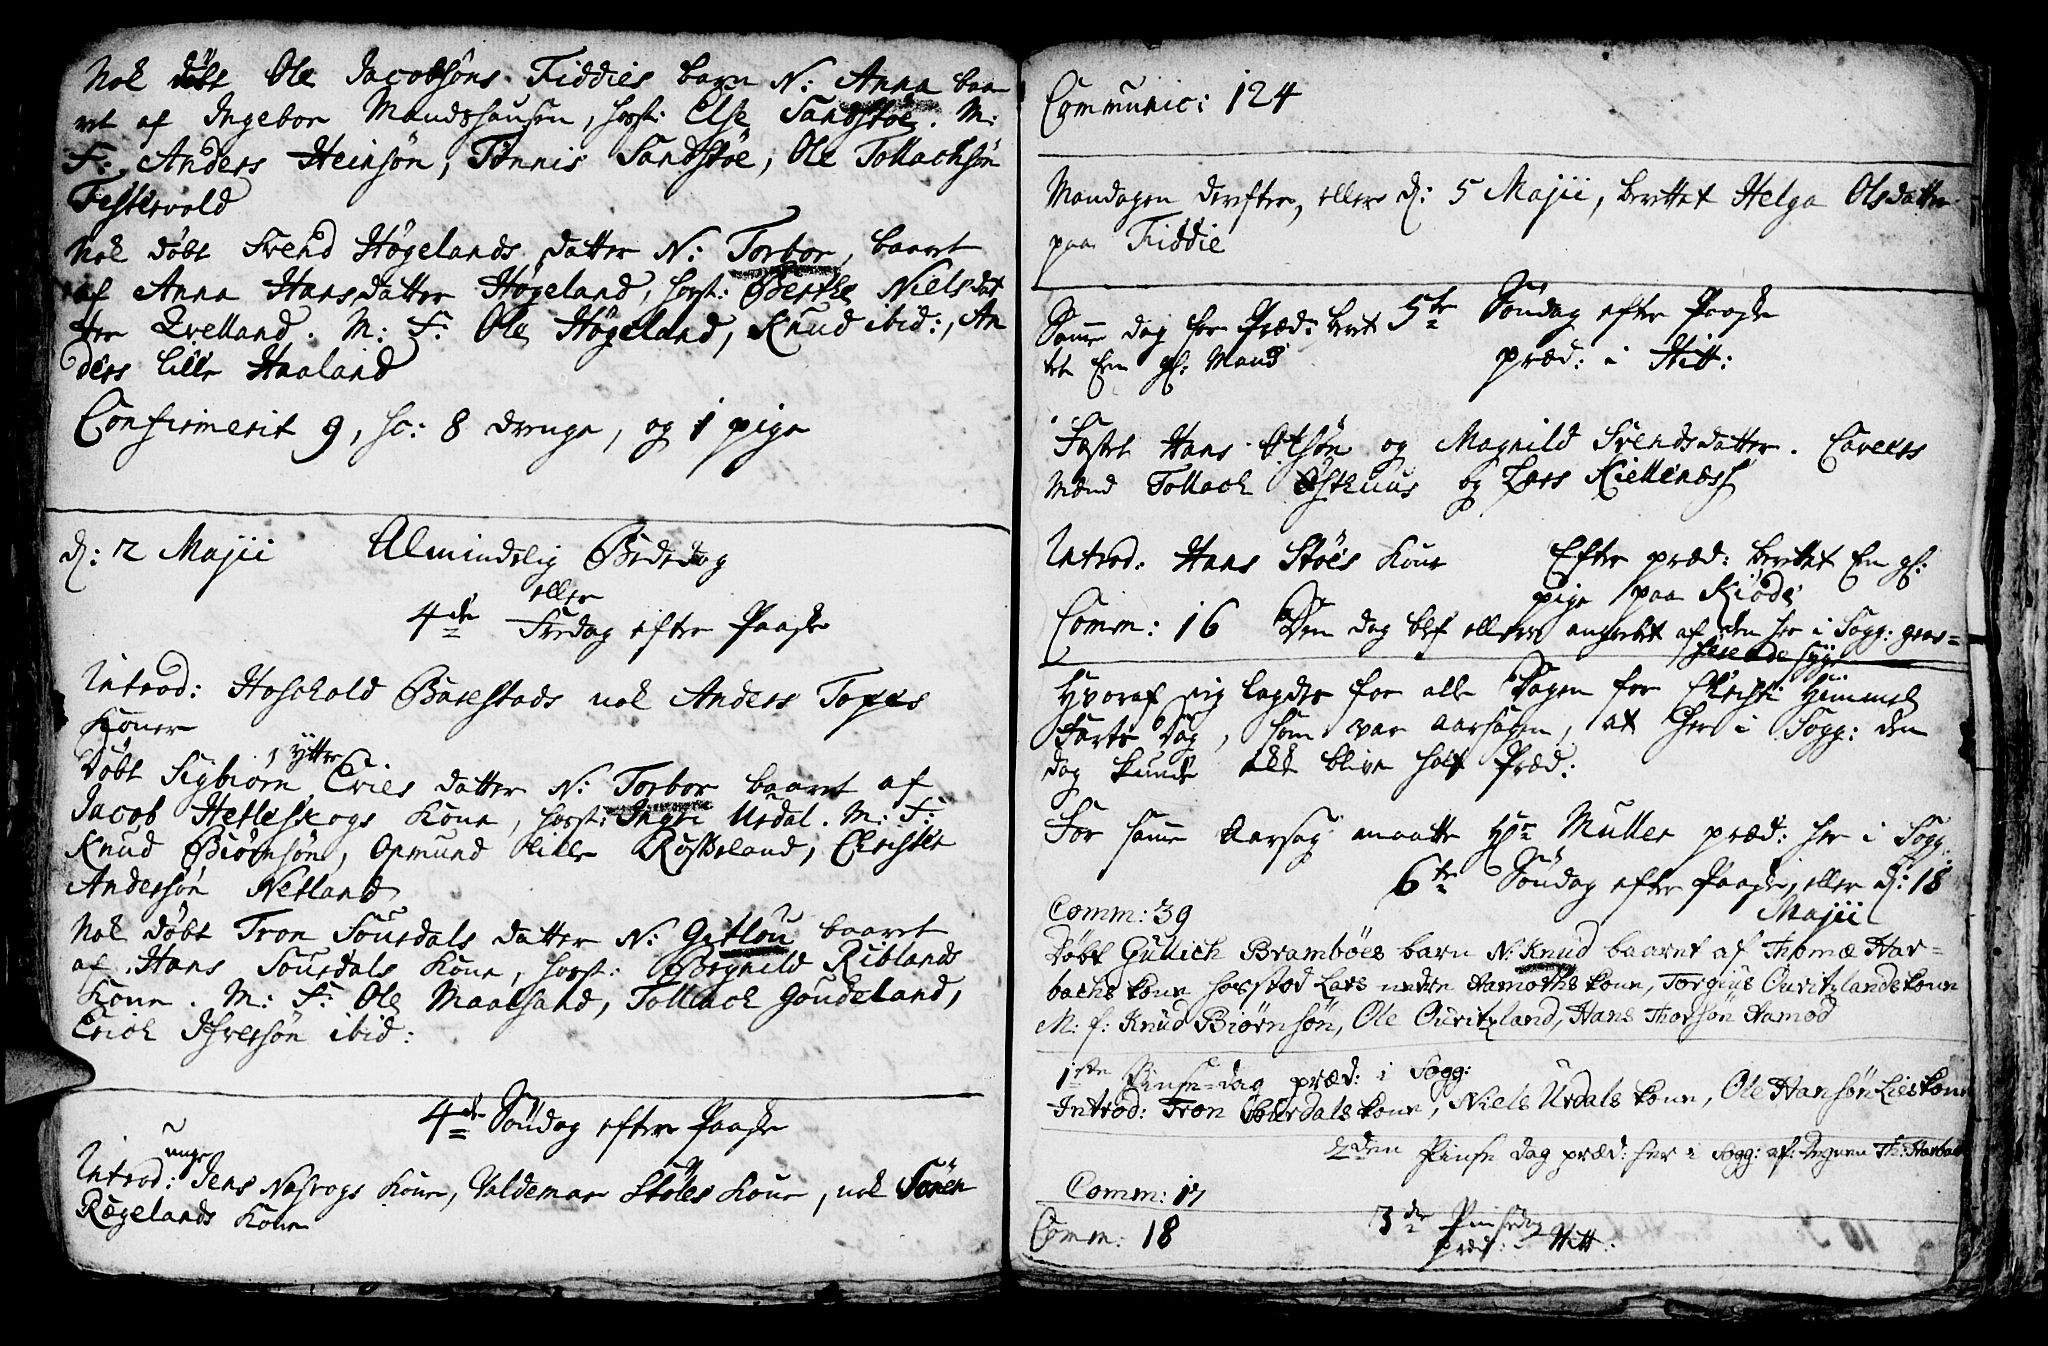 Nok döbt Ole Jacobsöns Fiddies barn N: Anna baa
ret af Ingebor Mandshausen, forst: Else Sandstöe. M:
F: Anders Heinsön, Tönnis Sandstöe, Ole Tollachsön
Festervold
Nok döbt Svend Högelands datter N: Torbor, baaret
af Anna Hansdatter Högeland, forst: Berthe Nielsdat
ter Qvelland. M: F: Ole Högeland, Knud ibid:, An
ders lille Haaland
Confirmerit 9, sc: 8 drenge, og 1 pige
d: 2 Majii Almindelig Bededag
eller
4de Fredag efter Paaske
Introd: Hoschold Barstads nok Anders Topes
Koner
Döbt Sigbiorn ytter Eries datter N: Torbor baaret af
Jacob Hetleskogs Kone, forst: Ingri Urdal. M: F:
Knud Biörnsön, Opmund lille Rosseland, Christen
Andersön Netland
Nok döbt Tron Sourdals datter N: Gitlou baaret
af Hans Sourdals Kone, forst: Borgnild Riblands
Kone. M: F: Ole Maalsand, Tollach Goudeland,
Erich Ifversön ibid:
4de Söndag efter Paaske
Introd: unge Jens Nesvogs Kone, Valdemar Stöles Kone, nok Sören
Rægelands Kone
Communic: 124
Mandagen derefter, eller d: 5 Majii, berettet Helga Olsdatter
paa Fiddie
Samme dag for Præd: beret
tet Em gl: Mand
5te Söndag efter Paaske
præd: i Hitt:
Fæstet Hans Otsön og Magnild Svendsdatter. Caverings
Mænd Tollach Østhuus og Lars Kiellenæss
Introd: Hans Stöes Kone
Efter præd: berettet Em gl:
pige paa Kiöde
Comm: 16 Den dag blef ellers angrebet af den her i Sogg: gras-
serende syge
Hvoraf ieg lagdes for alle Dagen for Christi Himmel
Farts Dag, som var aarsagen, at her i Sogg: den
dag kunde ikke blive holt Præd:
For samme Aarsag maatte Hr Muller præd: her i Sogg:
6te Söndag efter Paaske, eller d: 18
Majii
Comm: 39
Döbt Gullich Bramböes barn N: Knud baaret af Thomæ Har-
bachs kone forstod Lars nedre Hamoths kone, Torgius Ouritzlands kone
M: f: Knud Biörnsön, Ole Ouritzland, Hans Thorsön Hamod
1ste Pinse-dag præd: i Sogg:
Introd: Tron Sourdals kone, Niels Urdals kone, Ole Hansön Lies kone
2den Pinse dag præd: her i Sogg: af Degnen Th: Harbak
Comm: 17
Comm: 18
3de Pinsedag
præd: i Hitt: